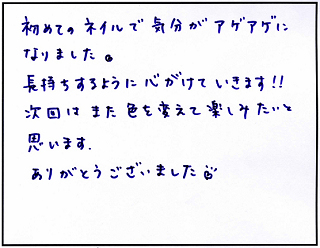 初めてのネイルで気分がアゲアゲに
なりました。
長持ちするように心がけていきます!!
次回はまた色を変えて楽しみたいと
思います.
ありがとうございました